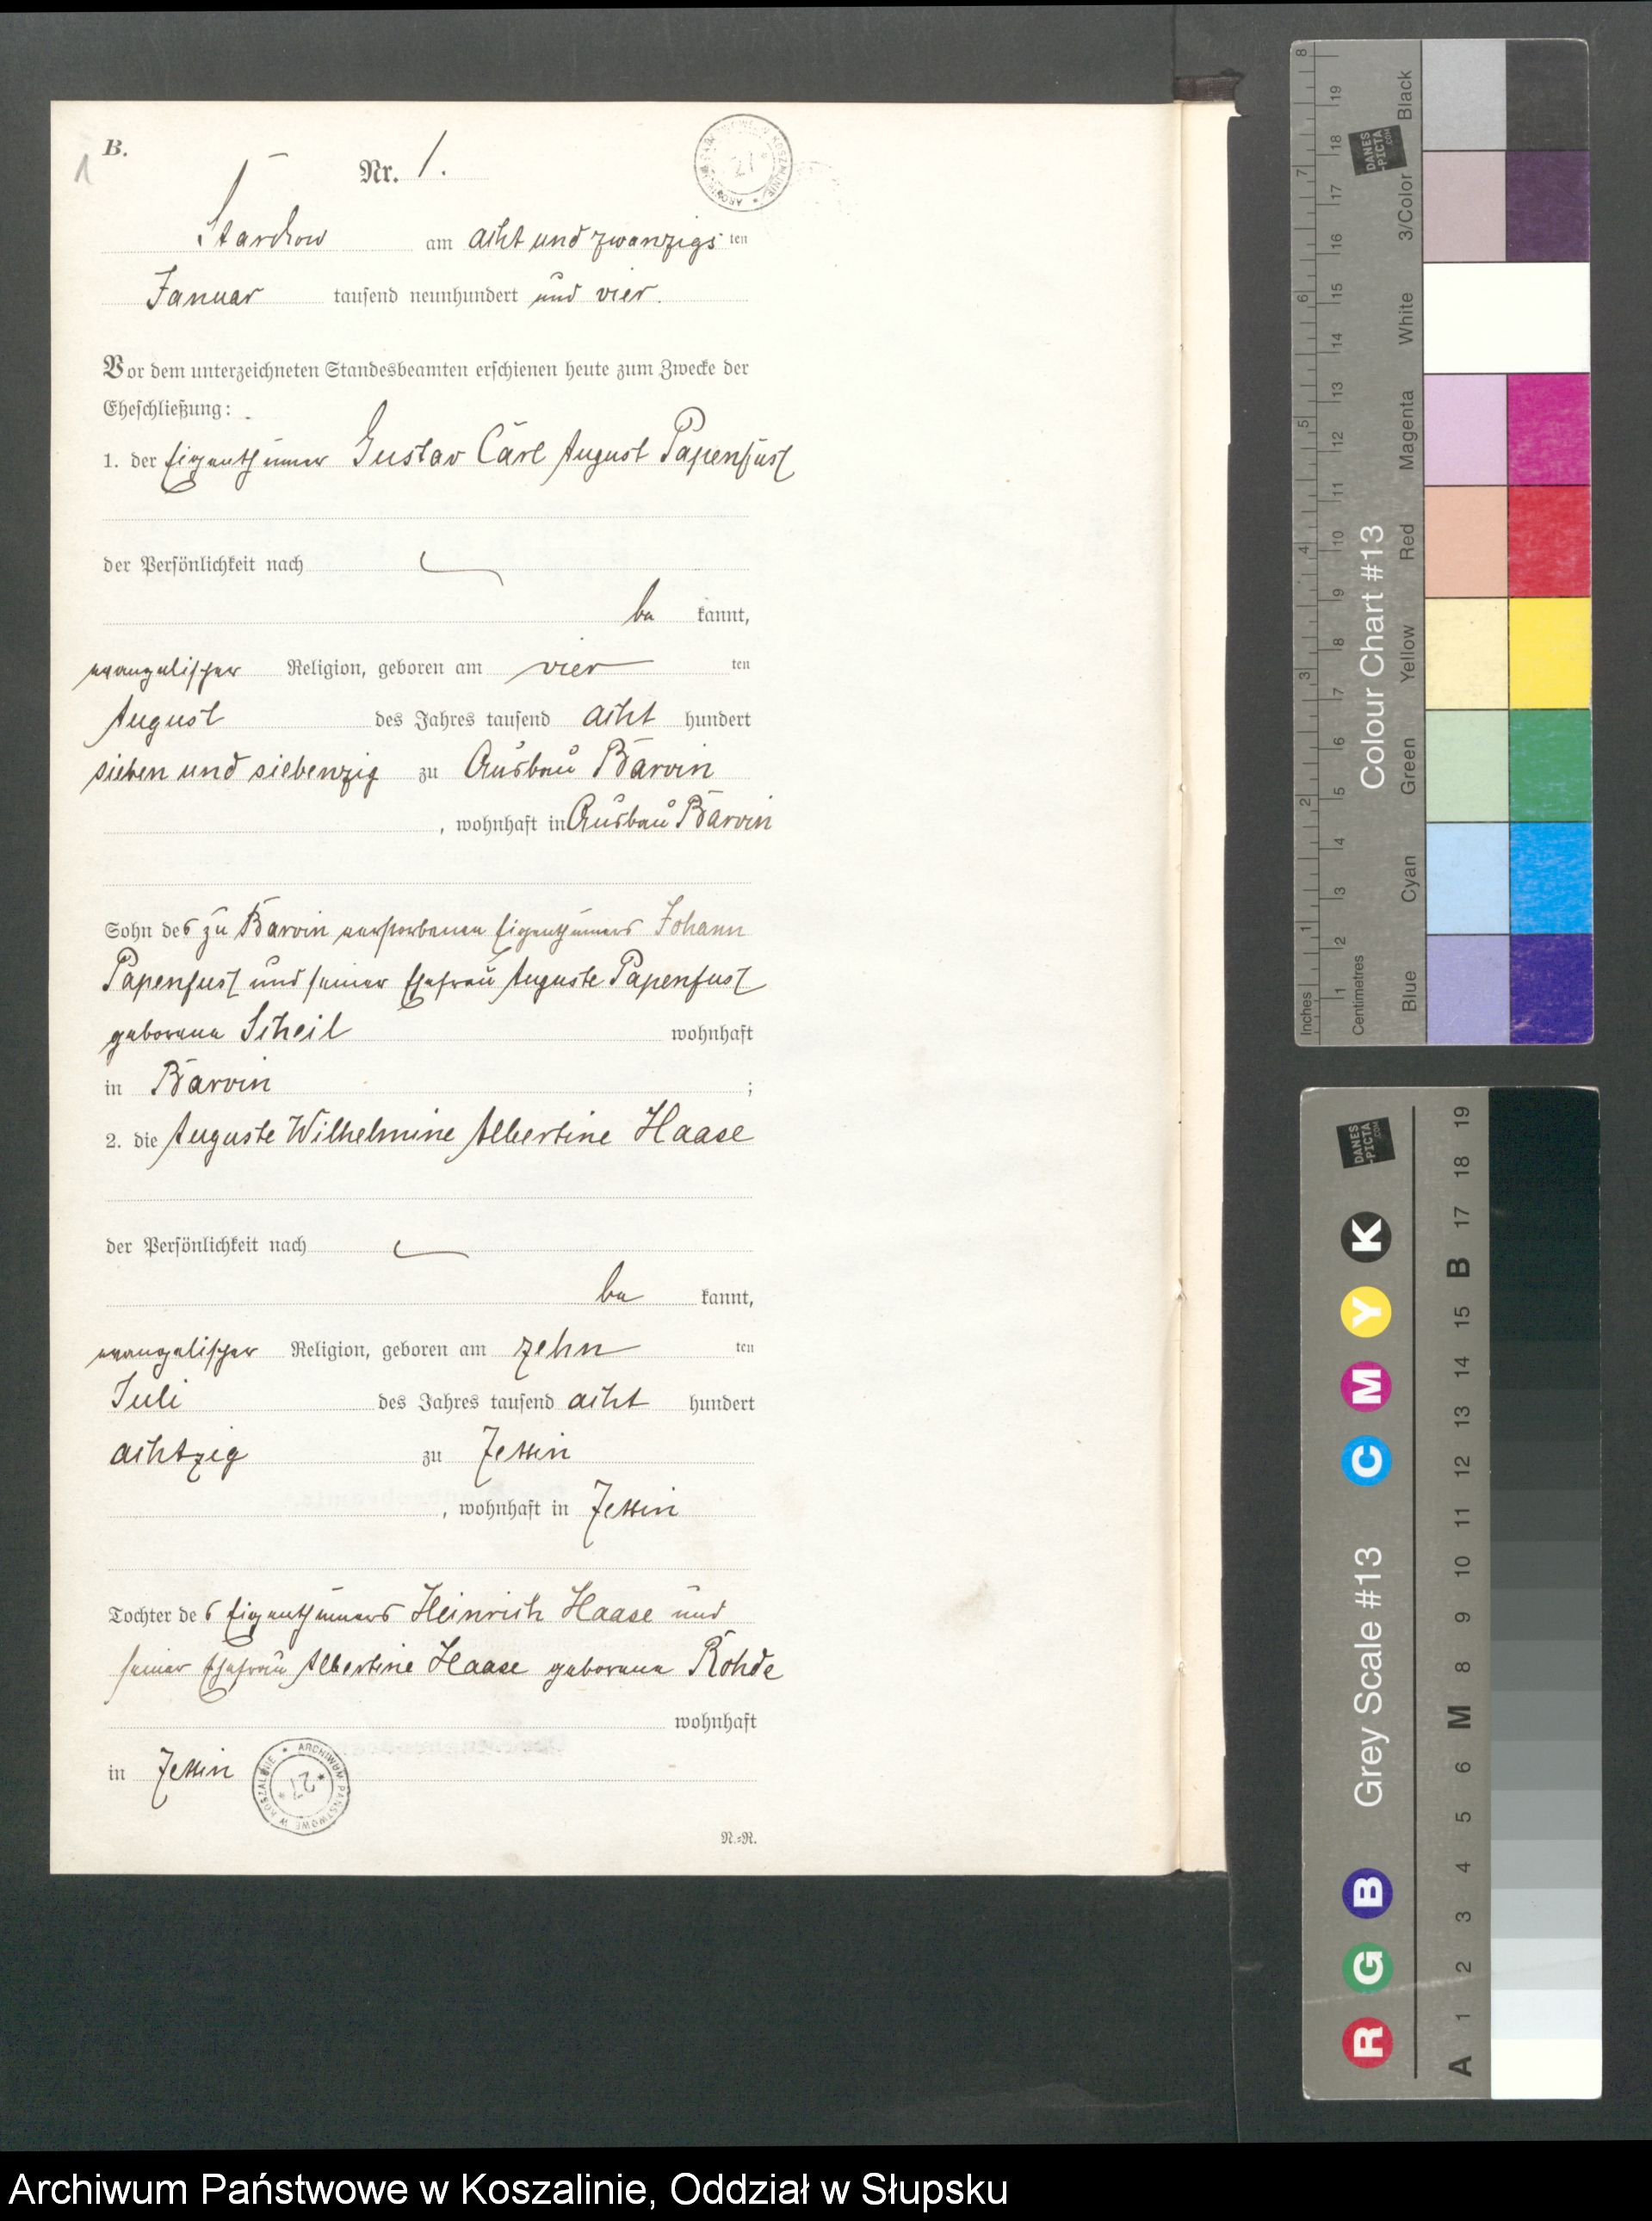 1
B.
Nr. 1.
Starchow am acht und zwanzigsten
Januar tausend neunhundert und vier.
Vor dem unterzeichneten Standesbeamten erschienen heute zum Zwecke der
Eheschließung:
1. der Eigenthümer Gustav Carl August Papenfust
der Persönlichkeit nach
be kannt,
evangelischer Religion, geboren am vier ten
August des Jahres tausend acht hundert
sieben und siebenzig zu Ausbau Barvin
, wohnhaft in Ausbau Barvin
Sohn des zu Barvin verstorbenen Eigenthümers Johann
Papenfust und seiner Ehefrau Auguste Papenfust
geborene Scheil wohnhaft
in Barvin ;
2. die Auguste Wilhelmine Albertine Haase
der Persönlichkeit nach
be kannt,
evangelischer Religion, geboren am zehn ten
Juli des Jahres tausend acht hundert
achtzig zu Zettin
, wohnhaft in Zettin
Tochter des Eigenthümers Heinrich Haase und
seiner Ehefrau Albertine Haase geborene Rohde
wohnhaft
in Zettin
ARCHIWUM PAŃSTWOWE W KOSZALINIE
27
N.=N.
Inches
1 2 3 4 5 6 7 8
Centimetres
1 2 3 4 5 6 7 8 9 10 11 12 13 14 15 16 17 18 19
Colour Chart #13
Blue Cyan Green Yellow Red Magenta White 3/Color Black
DANES
-PICTA
.COM
Grey Scale #13
R G B C M Y K
A 1 2 3 4 5 6 M 8 9 10 11 12 13 14 15 B 17 18 19
DANES
-PICTA
.COM
Archiwum Państwowe w Koszalinie, Oddział w Słupsku